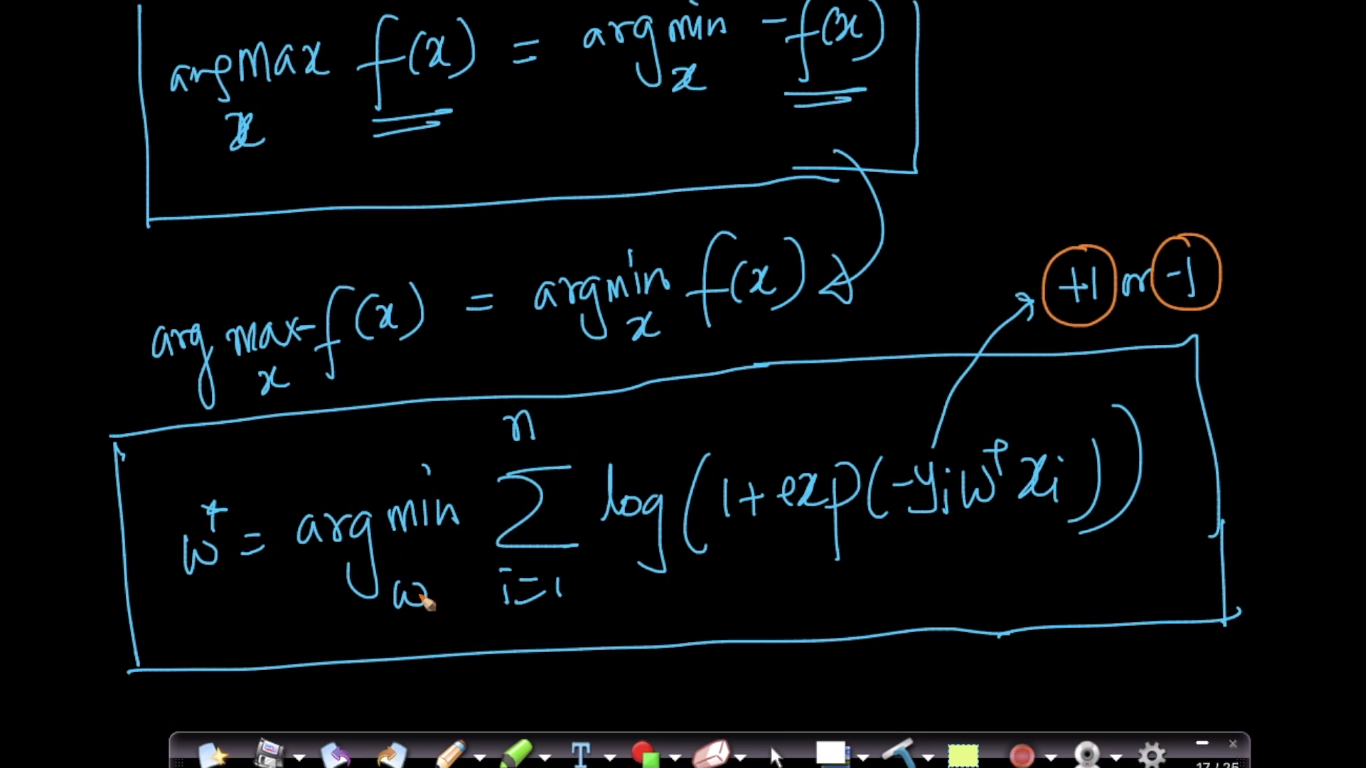 argmax f(x) = argmin -f(x)
x x
arg max -f(x) = argmin f(x)
x x
+1 or -1
n
w* = argmin Σ log(1+exp(-yiwᵀxi))
w i=1
T
17 / 25